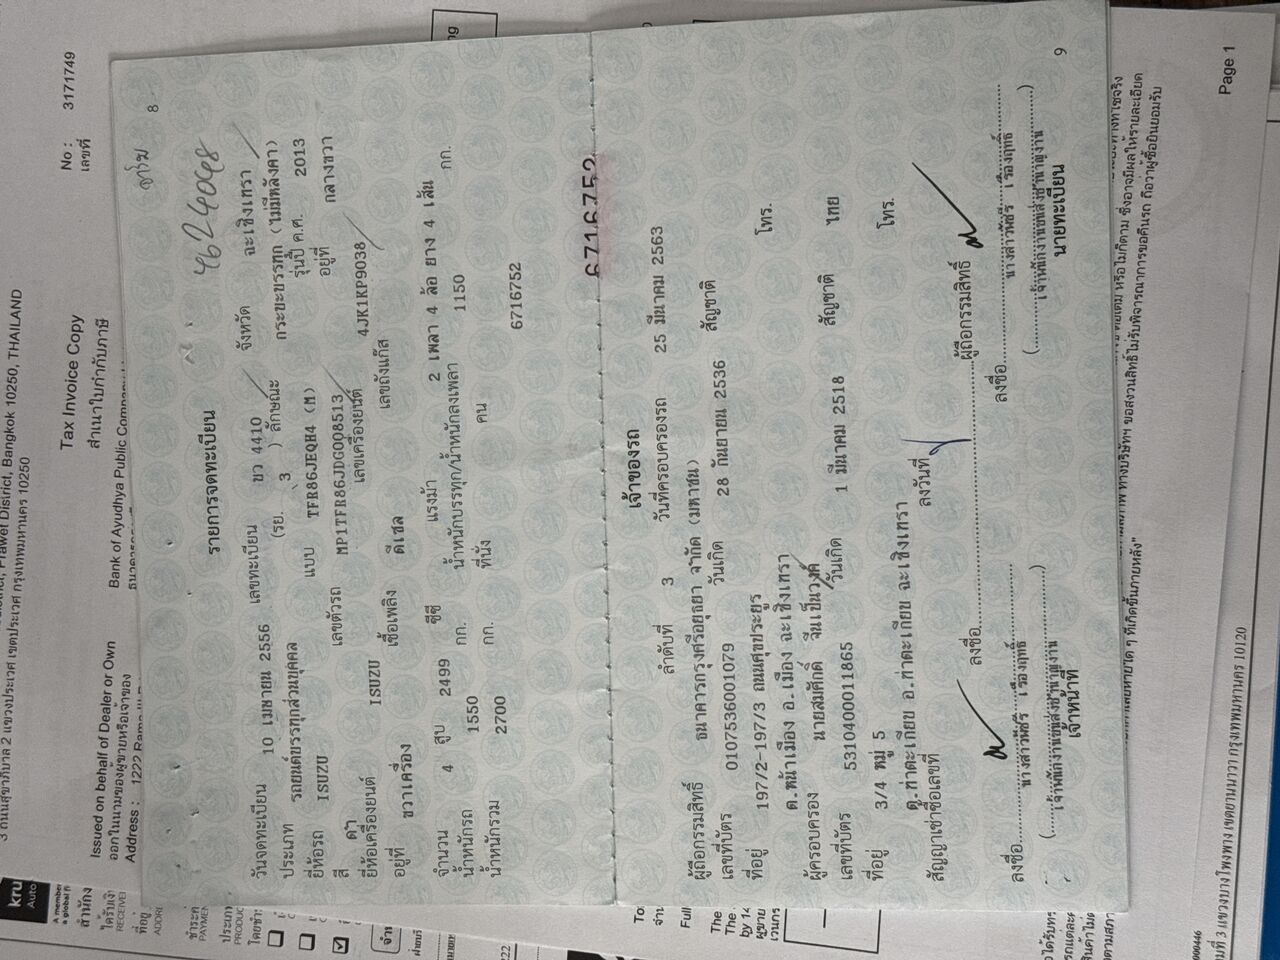 3 ถนนสุขาภิบาล 2 แขวงประเวศ เขตประเวศ กรุงเทพมหานคร 10250
District, Bangkok 10250, THAILAND
Tax Invoice Copy
สำเนาใบกำกับภาษี
No :
เลขที่
3171749
Issued on behalf of Dealer or Own
ออกในนามของผู้ขายหรือเจ้าของ
Bank of Ayudhya Public
Address :
1222
8
4624048
รายการจดทะเบียน
วันจดทะเบียน 10 เมษายน 2556 เลขทะเบียน ขว 4410 จังหวัด ฉะเชิงเทรา
ประเภท รถยนต์บรรทุกส่วนบุคคล (รย. 3 ) ลักษณะ กระบะบรรทุก (ไม่มีหลังคา)
ยี่ห้อรถ ISUZU แบบ TFR86JEQH4 (M) รุ่นปี ค.ศ. 2013
สี ดำ เลขตัวรถ MP1TFR86JDG008513 อยู่ที่ กลางขวา
ยี่ห้อเครื่องยนต์ ISUZU เลขเครื่องยนต์ 4JK1KP9038
อยู่ที่ ขวาเครื่อง เชื้อเพลิง ดีเซล เลขถังแก๊ส
จำนวน 4 สูบ 2499 ซีซี แรงม้า 2 เพลา 4 ล้อ ยาง 4 เส้น
น้ำหนักรถ 1550 กก. น้ำหนักบรรทุก/น้ำหนักลงเพลา 1150 กก.
น้ำหนักรวม 2700 กก. ที่นั่ง คน
6716752
6716752
เจ้าของรถ
ลำดับที่ 3 วันที่ครอบครองรถ 25 มีนาคม 2563
ผู้ถือกรรมสิทธิ์ ธนาคารกรุงศรีอยุธยา จำกัด (มหาชน)
เลขที่บัตร 0107536001079 วันเกิด 28 กันยายน 2536 สัญชาติ
ที่อยู่ 197/2-197/3 ถนนศุขประยูร โทร.
ต.หน้าเมือง อ.เมือง ฉะเชิงเทรา
ผู้ครอบครอง นายสมศักดิ์ จีนเป็นวงค์
เลขที่บัตร 5310400011865 วันเกิด 1 มีนาคม 2518 สัญชาติ ไทย
ที่อยู่ 3/4 หมู่ 5 โทร.
ต.ท่าตะเกียบ อ.ท่าตะเกียบ ฉะเชิงเทรา
สัญญาเช่าซื้อเลขที่ ลงวันที่
ลงชื่อ ผู้ถือกรรมสิทธิ์
ลงชื่อ ลงชื่อ
นางสาวพัชรี เรืองฤทธิ์ นางสาวพัชรี เรืองฤทธิ์
เจ้าพนักงานขนส่งชำนาญงาน เจ้าพนักงานขนส่งชำนาญงาน
เจ้าหน้าที่ นายทะเบียน
9
ขอสงวนสิทธิ์ไม่รับพิจารณาการขอคืนรถ ถือว่าผู้ซื้อยินยอมรับ
ที่เกิดขึ้นภายหลัง"
Page 1
3 แขวงบางโพงพาง เขตยานนาวา กรุงเทพมหานคร 10120